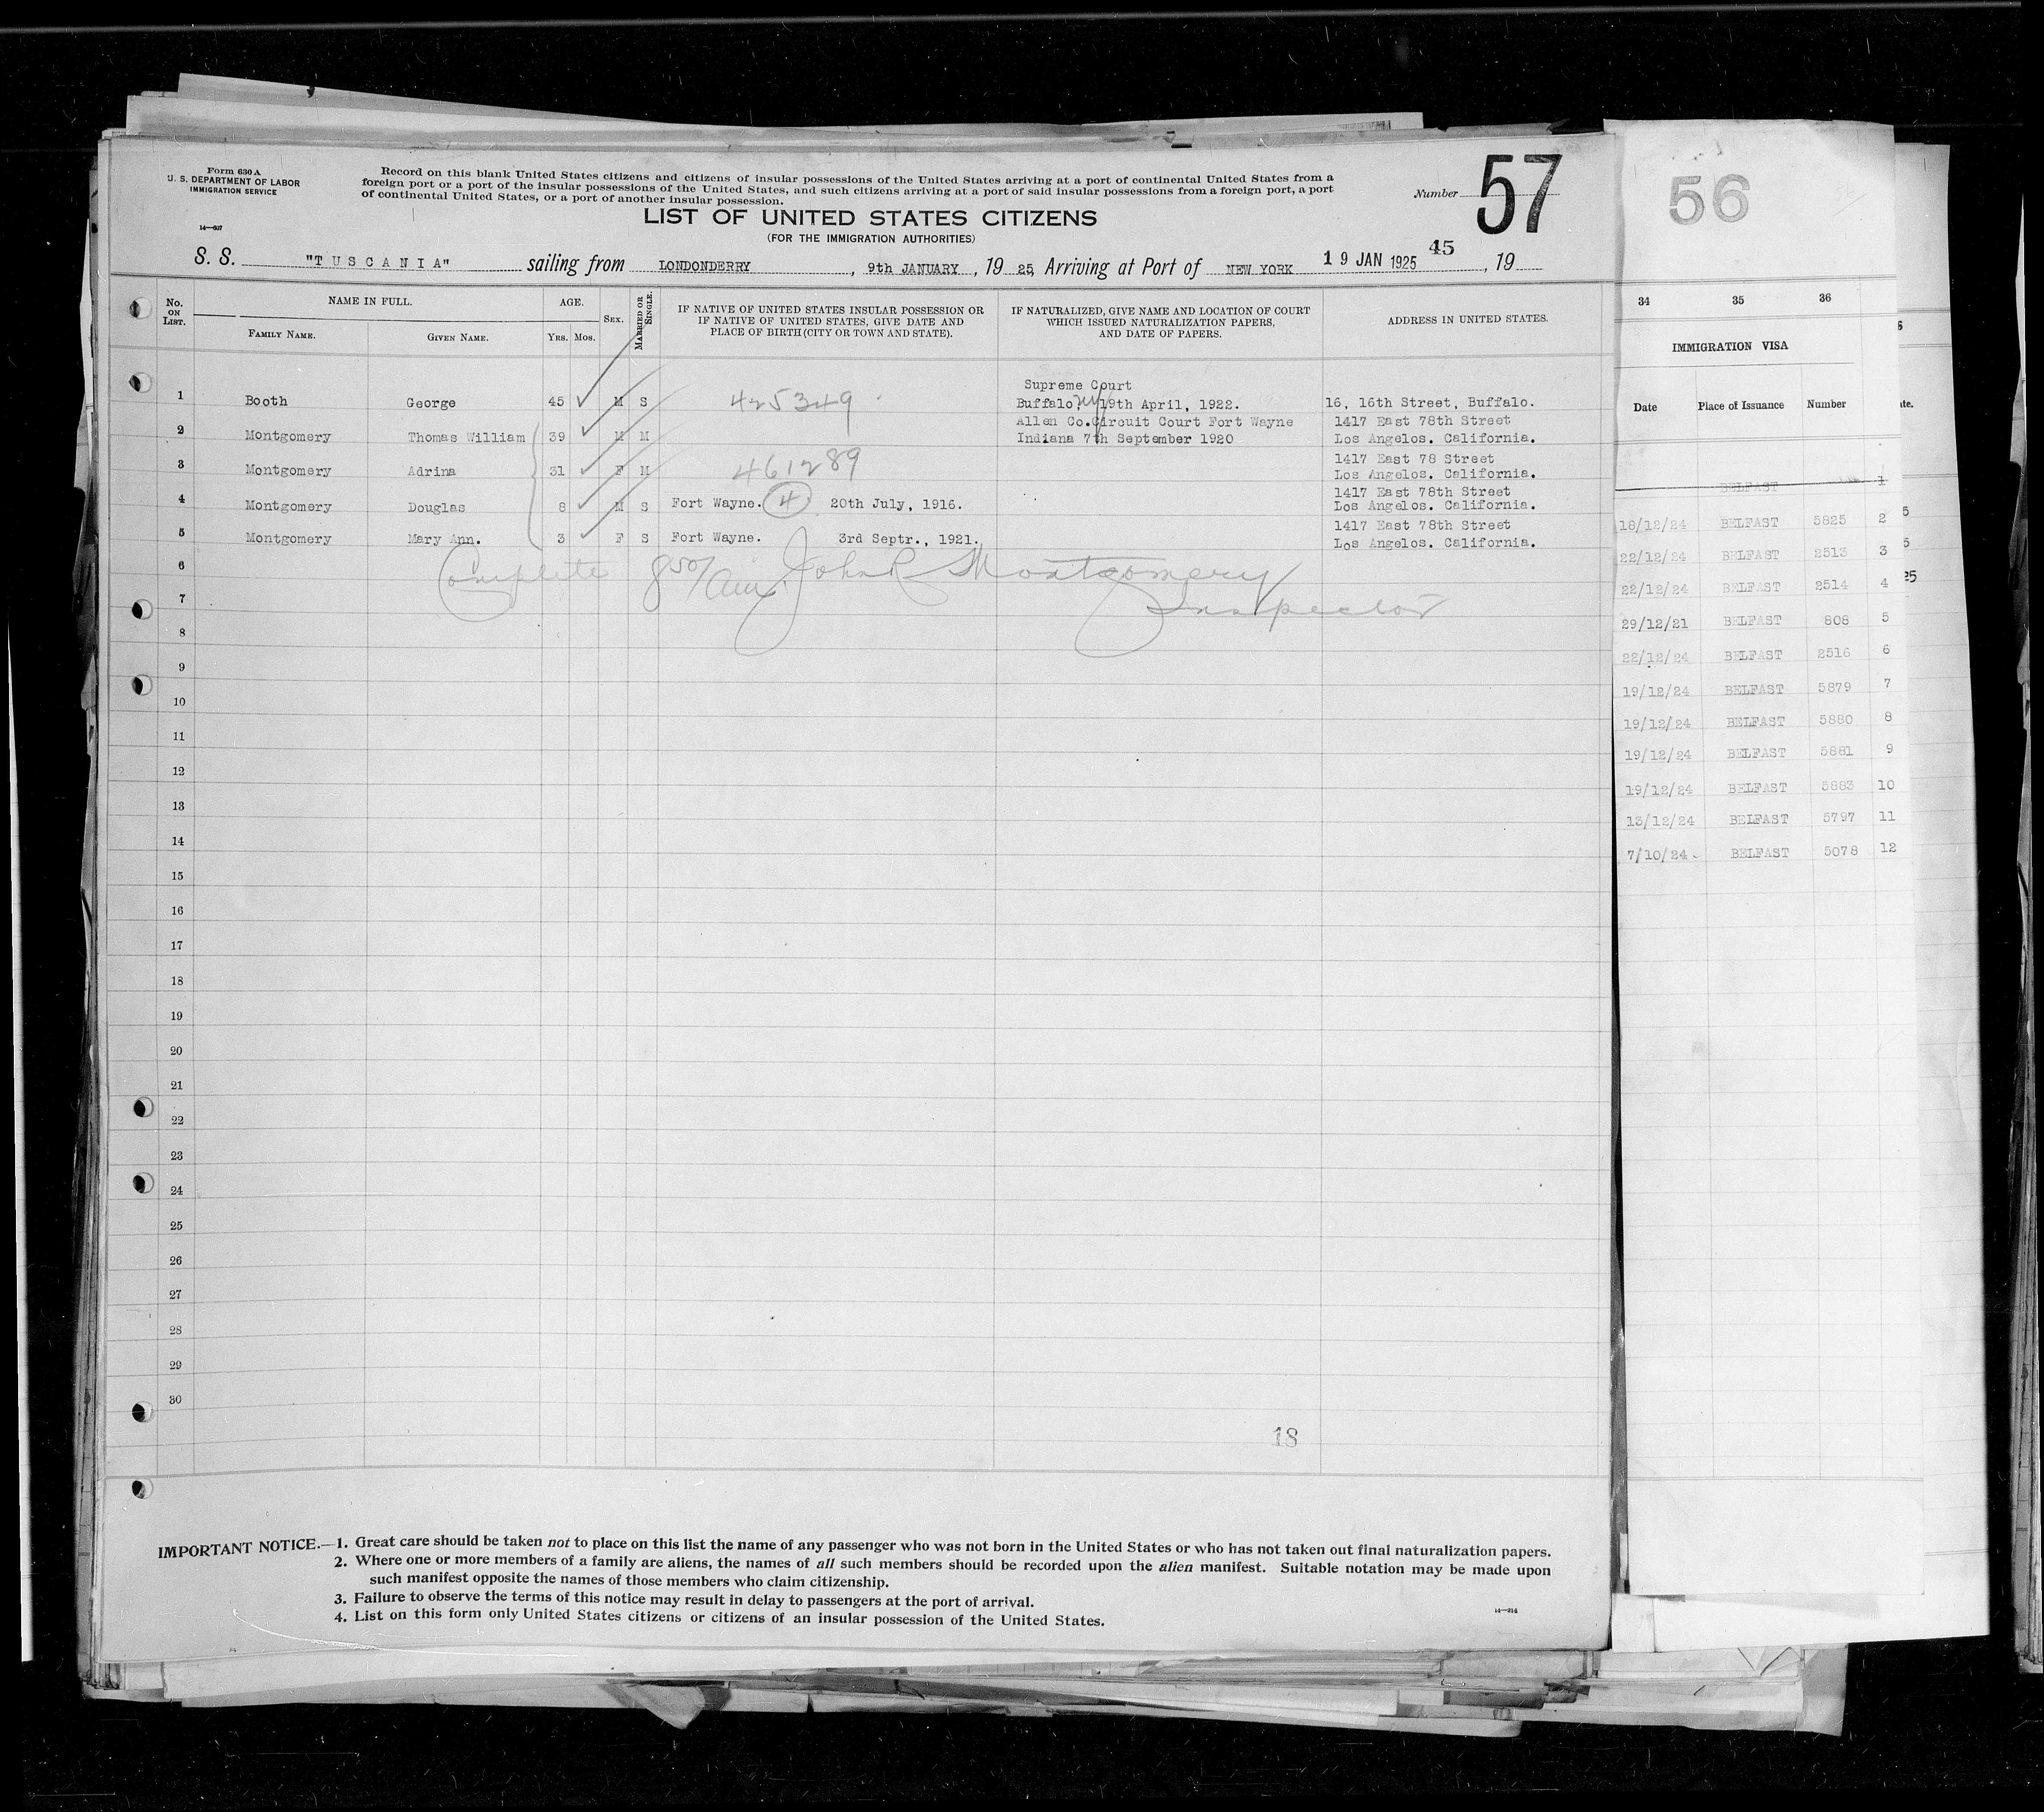 Form 630 A
U. S. DEPARTMENT OF LABOR
IMMIGRATION SERVICE
14—607
Record on this blank United States citizens and citizens of insular possessions of the United States arriving at a port of continental United States from a
foreign port or a port of the insular possessions of the United States, and such citizens arriving at a port of said insular possessions from a foreign port, a port
of continental United States, or a port of another insular possession.
Number 57
LIST OF UNITED STATES CITIZENS
(FOR THE IMMIGRATION AUTHORITIES)
S. S. "TUSCANIA" sailing from LONDONDERRY, 9th JANUARY, 19 25, Arriving at Port of NEW YORK 19 JAN 1925 45, 19
No. ON LIST. NAME IN FULL. AGE. SEX. MARRIED OR SINGLE. IF NATIVE OF UNITED STATES INSULAR POSSESSION OR IF NATIVE OF UNITED STATES, GIVE DATE AND PLACE OF BIRTH (CITY OR TOWN AND STATE). IF NATURALIZED, GIVE NAME AND LOCATION OF COURT WHICH ISSUED NATURALIZATION PAPERS, AND DATE OF PAPERS. ADDRESS IN UNITED STATES.
FAMILY NAME. GIVEN NAME. YRS. MOS.
Supreme Court
1 Booth George 45 M S 425349 Buffalo, NY 19th April, 1922. 16, 16th Street, Buffalo.
Allen Co. Circuit Court Fort Wayne 1417 East 78th Street
2 Montgomery Thomas William 39 M M Indiana 7th September 1920 Los Angelos. California.
1417 East 78 Street
3 Montgomery Adrina 31 F M 461289 Los Angelos. California.
1417 East 78th Street
4 Montgomery Douglas 8 M S Fort Wayne. 4 20th July, 1916. Los Angelos. California.
1417 East 78th Street
5 Montgomery Mary Ann. 3 F S Fort Wayne. 3rd Septr., 1921. Los Angelos. California.
6 Complete 850/ John R Montgomery
7 Inspector
8
9
10
11
12
13
14
15
16
17
18
19
20
21
22
23
24
25
26
27
28
29
30
18
IMPORTANT NOTICE.—1. Great care should be taken not to place on this list the name of any passenger who was not born in the United States or who has not taken out final naturalization papers.
2. Where one or more members of a family are aliens, the names of all such members should be recorded upon the alien manifest. Suitable notation may be made upon
such manifest opposite the names of those members who claim citizenship.
3. Failure to observe the terms of this notice may result in delay to passengers at the port of arrival.
4. List on this form only United States citizens or citizens of an insular possession of the United States.
14—914
56
34 35 36
IMMIGRATION VISA
Date Place of Issuance Number
BELFAST 1
18/12/24 BELFAST 5825 2
22/12/24 BELFAST 2513 3
22/12/24 BELFAST 2514 4
29/12/21 BELFAST 808 5
22/12/24 BELFAST 2516 6
19/12/24 BELFAST 5879 7
19/12/24 BELFAST 5880 8
19/12/24 BELFAST 5881 9
19/12/24 BELFAST 5883 10
13/12/24 BELFAST 5797 11
7/10/24 BELFAST 5078 12